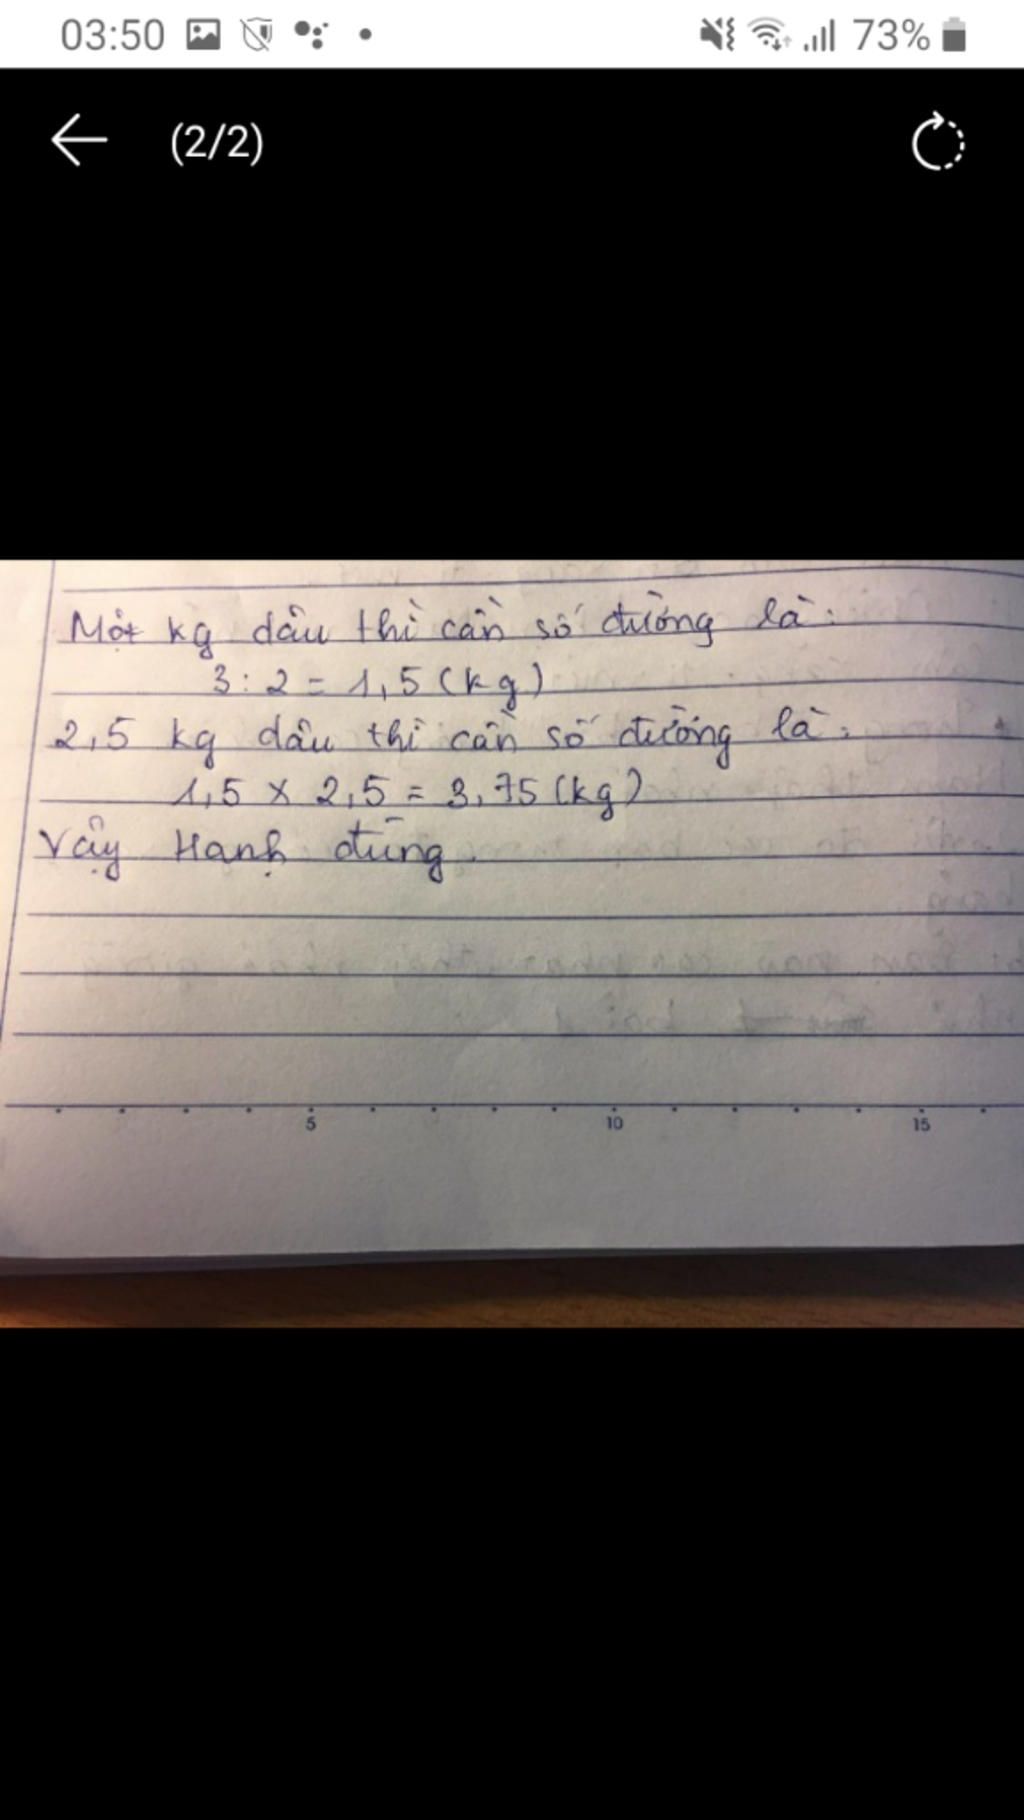 03:50
73%
(2/2)
Một kg dâu thì cần số đường là:
3 : 2 = 1,5 (kg)
2,5 kg dâu thì cần số đường là:
1,5 x 2,5 = 3,75 (kg)
Vậy Hạnh đúng.
5 10 15